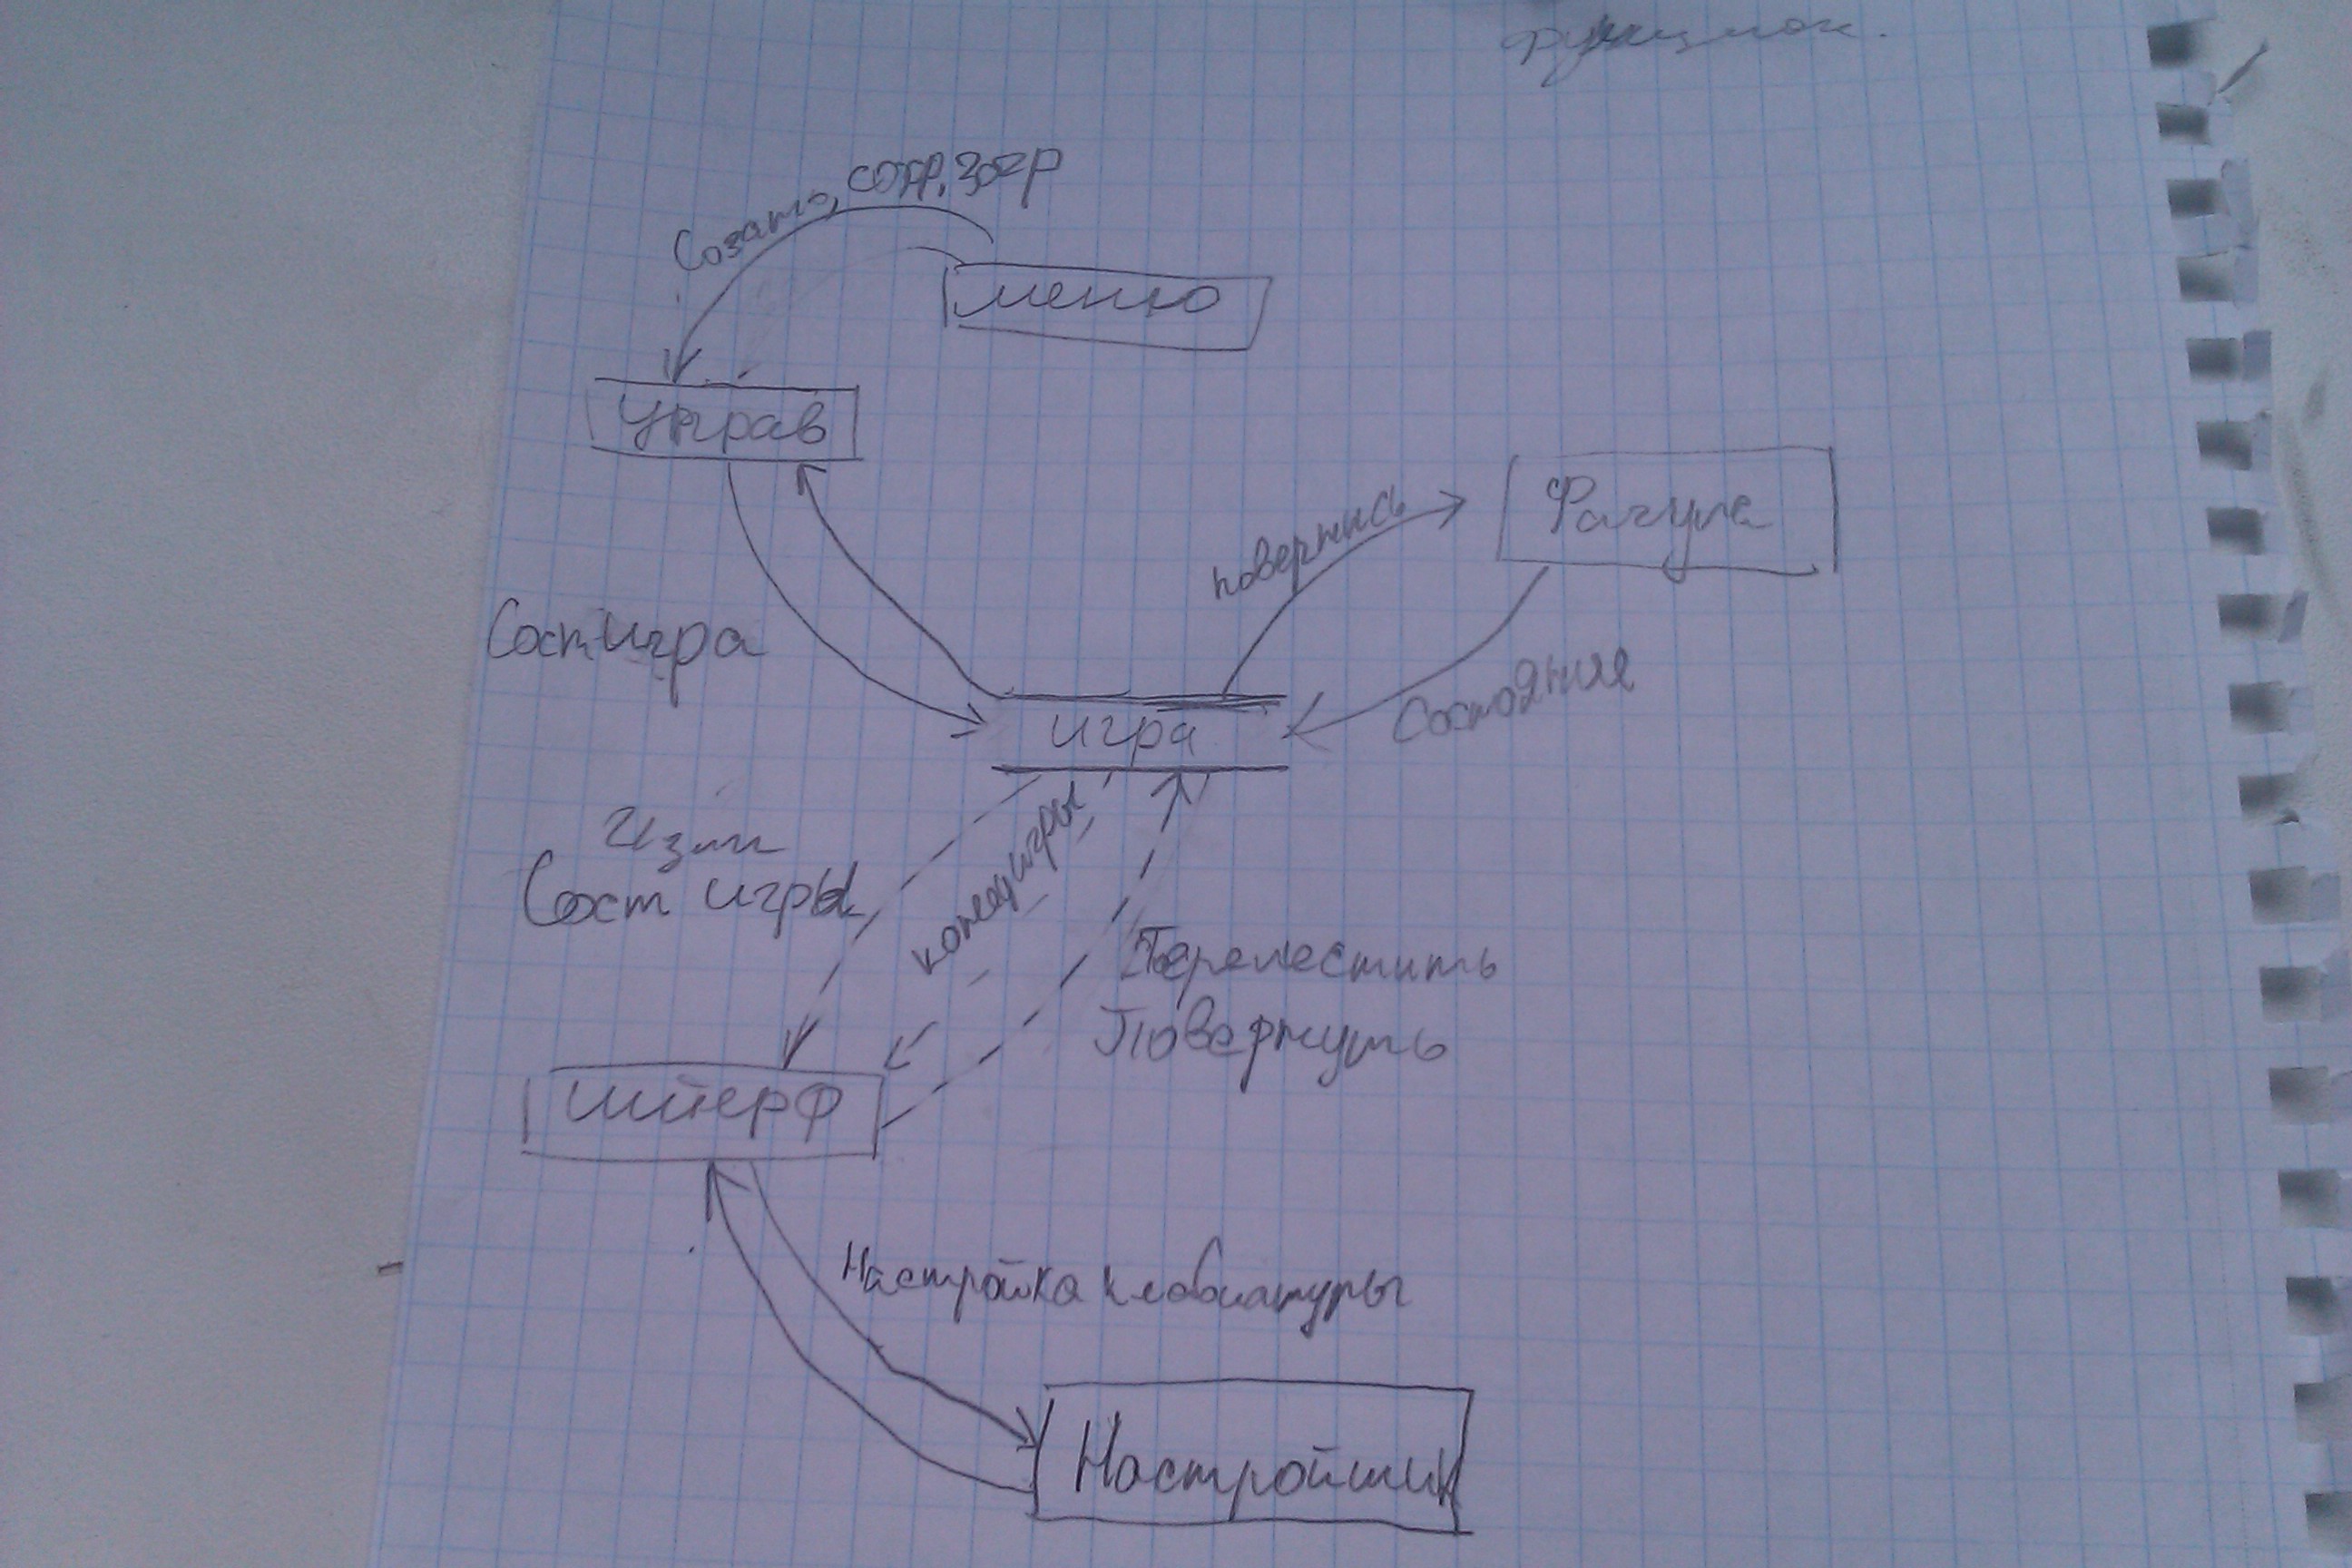 функцион.
Созать, сохр, загр
меню
Управ
Фигура
повернись
Сост игра
Состояние
игра
Изм
Сост игры
конец игры
Переместить
Повернуть
интерф
Настройка клавиатуры
Настройщик